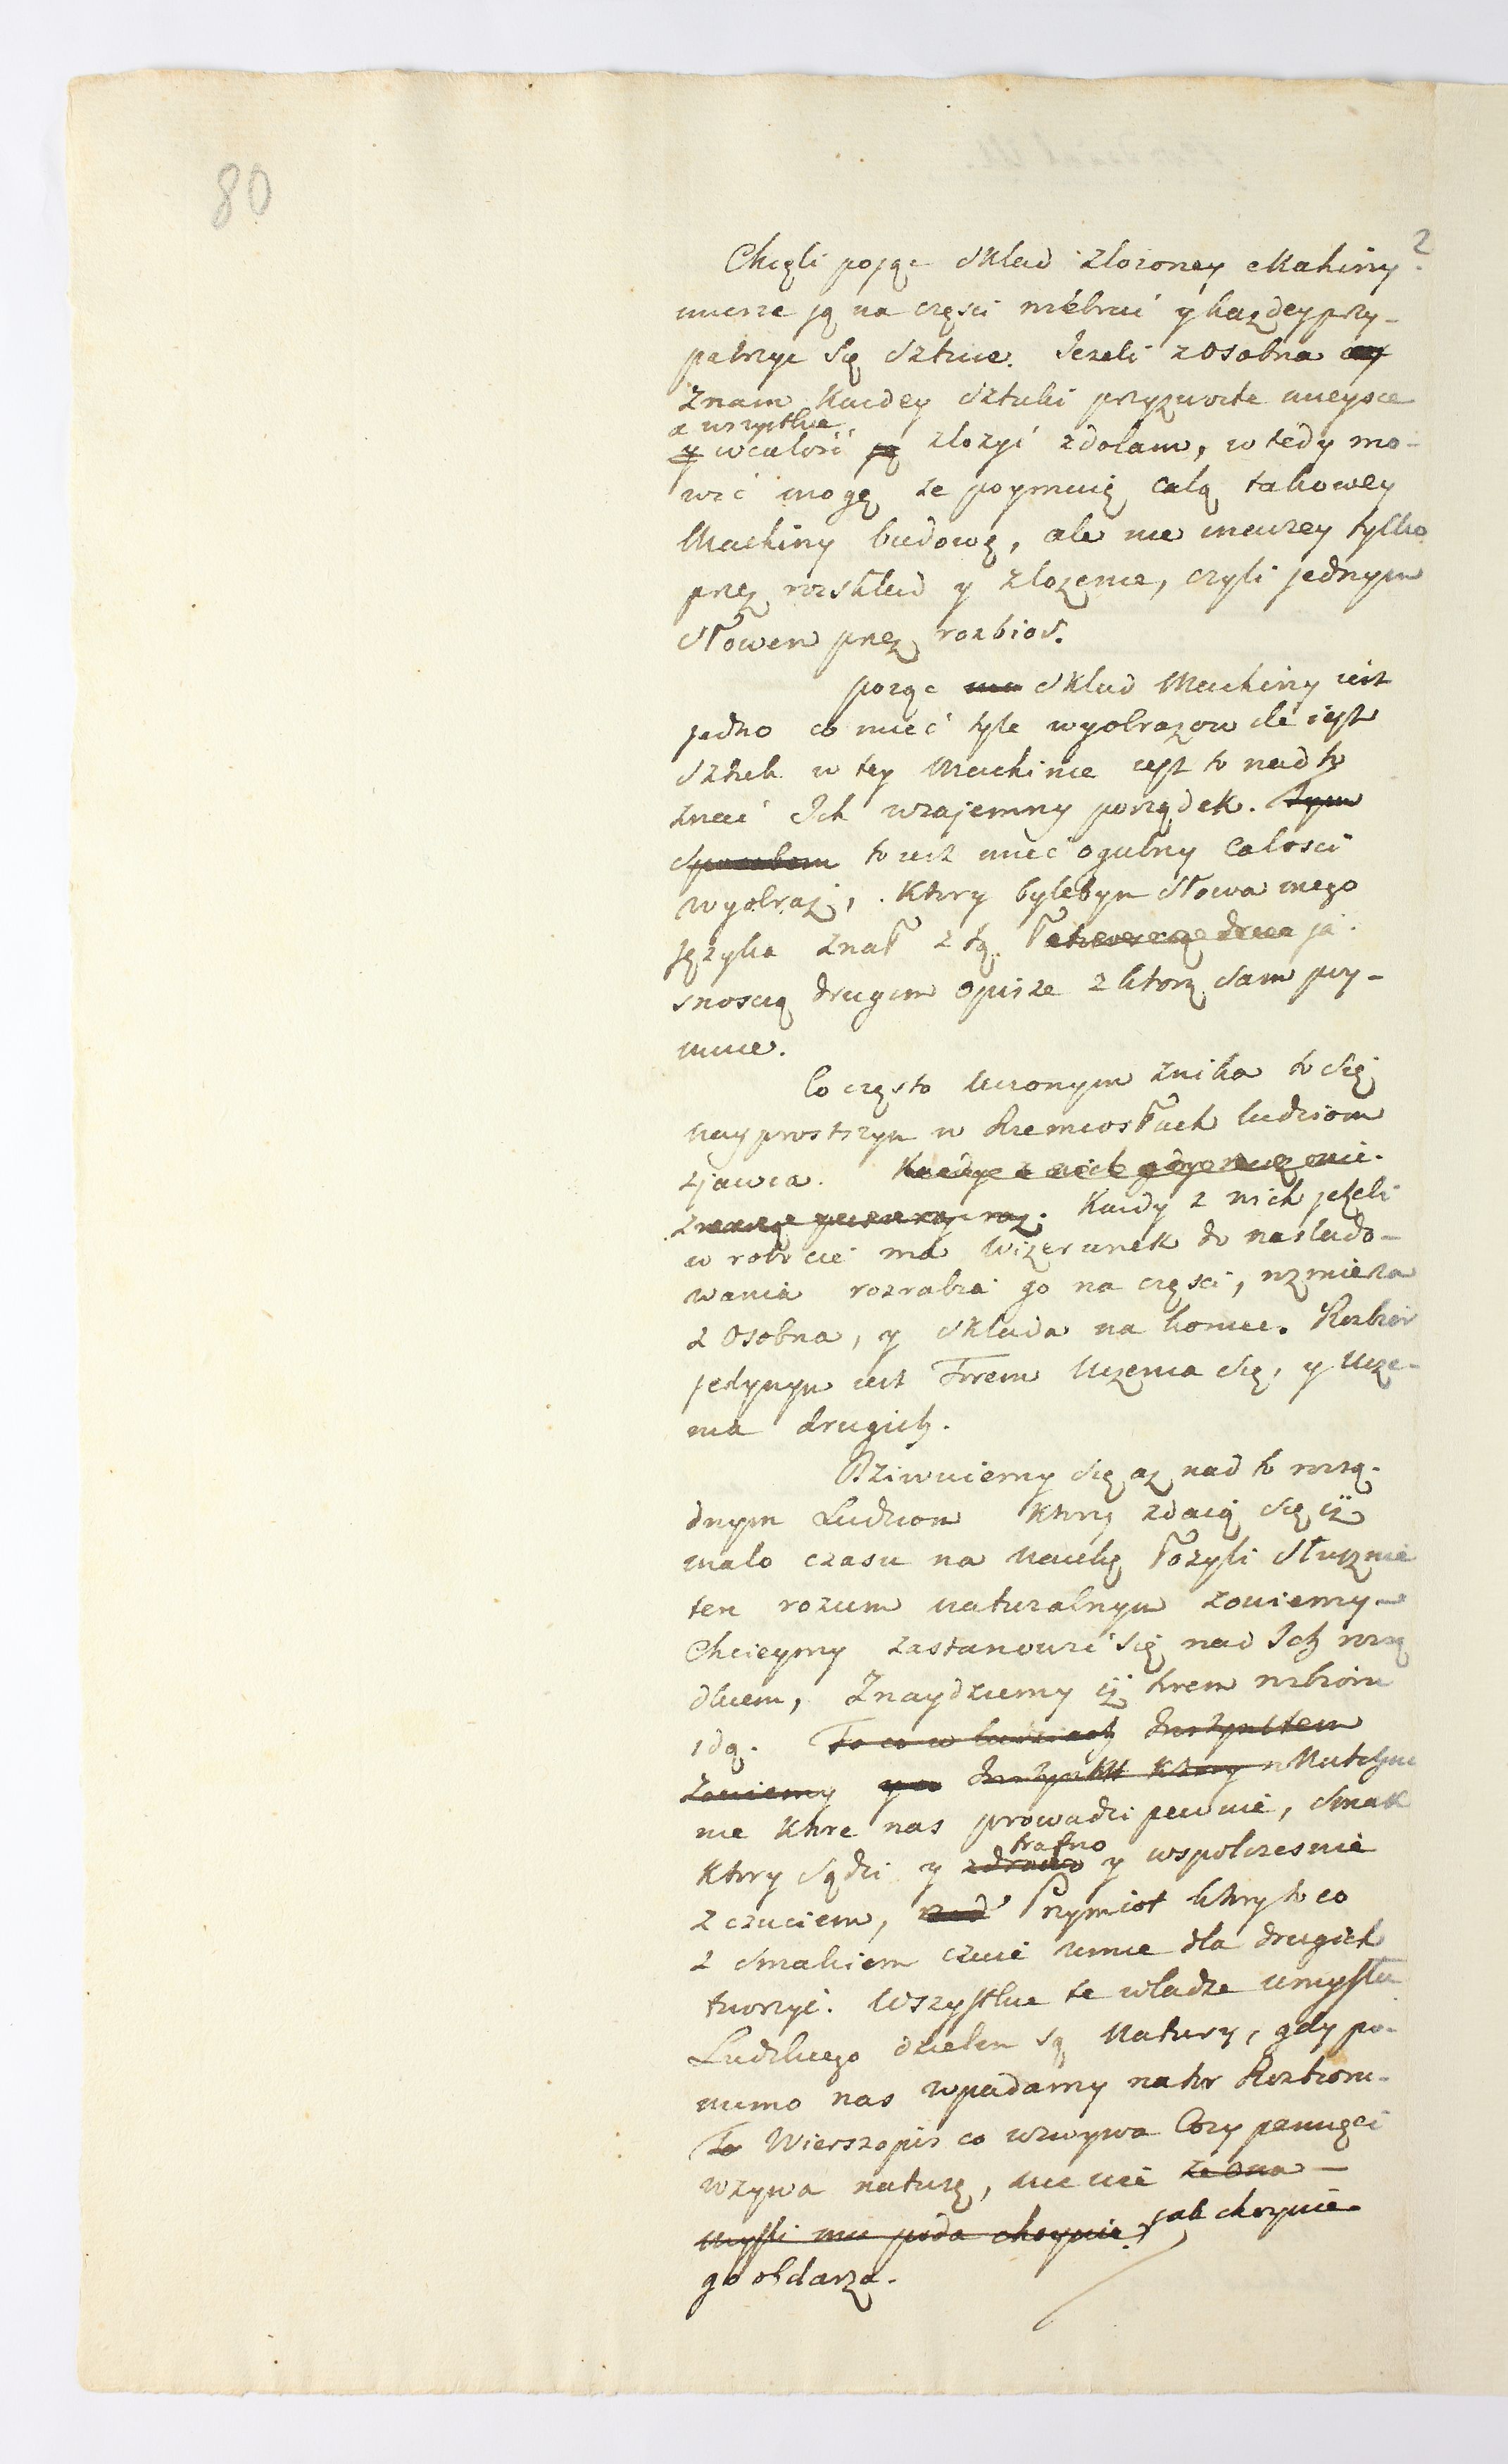 80
2
Chcęli pojąc Skład złozoney Mahiny
musze ją na częsci rozebrać y kazdey przy-
patrzyc Się Sztuce. Jezeli z osobna
Znam Kazdey Sztuki przyzwoite mieysce
a wszystkie
y wcałość ją złozyć zdolam, w tedy mo-
wić mogę że poymuię całą takowey
Machiny budowę, ale nie inaczey tylko
przez rozskład y złozenie, czyli jednym
Słowem przez rozbior.
pojąc Skład Machiny iest
jedno co mieć tyle wyobrazow ile iest
Sztuk w tey Machinie iest to nad to
znać Ich wzajemny porządek. Tym
Sposobem to iest miec ogulny Całosci
wyobraz, Ktory bylebym Słowa mego
Języka znał z tą ja-
snoscią drugim opisze z ktorą Sam poy-
muie.
Co często Uczonym znika to Się
nayprostszym w Rzemiosłach ludziom
zjawia. Kazdy z nich gdy
Kazdy z nich jeżeli
w robocie ma Wizerunek do naslado-
wania rozrabia go na częsci, rozmierza
z Osobna, y Składa na koniec. Rozbior
jedynym iest Torem Uczenia Się, y Ucze-
nia drugich.
Dziwuiemy Się az nad to rozsą-
dnym Ludziom Ktorzy zdaią Się iż
mało czasu na Naukę łozyli Słusznie
ten rozum naturalnym zowiemy
Chcieymy zastanowić Się nad Ich rozsą
dkiem, Znaydziemy iż torem rozbioru
idą. To co w ludziach Instynktem
Zowiemy Instynkt Ktory Natchnie
nie Ktore nas prowadzi pewnie, Smak
trafno
Ktory Sądzi y zdrowo y wspołczesnie
z czuciem, Przymiot Ktory to co
z Smakiem czuie umie dla drugich
tworzyć. Wszystkie te władze umysłu
Ludzkiego dziełem są Natury, gdy po-
mimo nas wpadamy na tor Rozbioru.
To Wierszopis co wzywa Cory pamięci
wzywa naturę, nie wie że ona
mysli mu poda choynie, jak choynie
go obdarza.